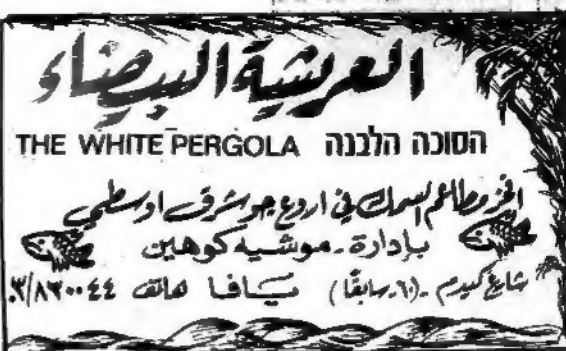 العريشية البيضاء
THE WHITE PERGOLA הסוכה הלבנה
افخر مطاعم السمك في اروع جو شرق اوسطي
بإدارة - موشيه كوهين
شارع كيدم - (٦٠ سابقًا) يافا هاتف ٠٣/٨٣٠٠٤٤